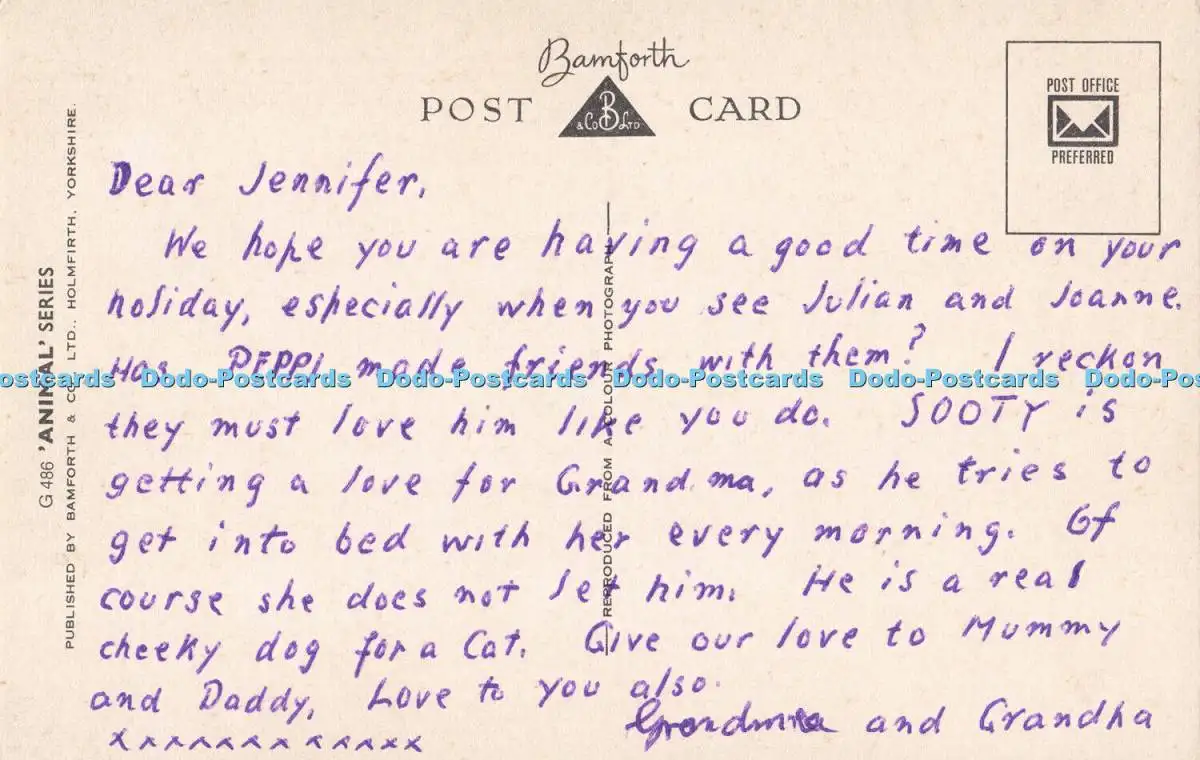 Bamforth
POST CARD
B
& Co LTD
POST OFFICE
PREFERRED
G 486 'ANIMAL' SERIES
PUBLISHED BY BAMFORTH & CO LTD., HOLMFIRTH, YORKSHIRE.
REPRODUCED FROM A COLOUR PHOTOGRAPH
Dear Jennifer,
We hope you are having a good time on your
holiday, especially when you see Julian and Joanne.
Has PEPPI made friends with them? I reckon
Dodo-Postcards Dodo-Postcards Dodo-Postcards Dodo-Postcards
they must love him like you do. SOOTY is
getting a love for Grandma, as he tries to
get into bed with her every morning. Of
course she does not let him. He is a real
cheeky dog for a Cat. Give our love to Mummy
and Daddy, Love to you also.
Grandma and Grandha
x x x x x x x x x x x x x